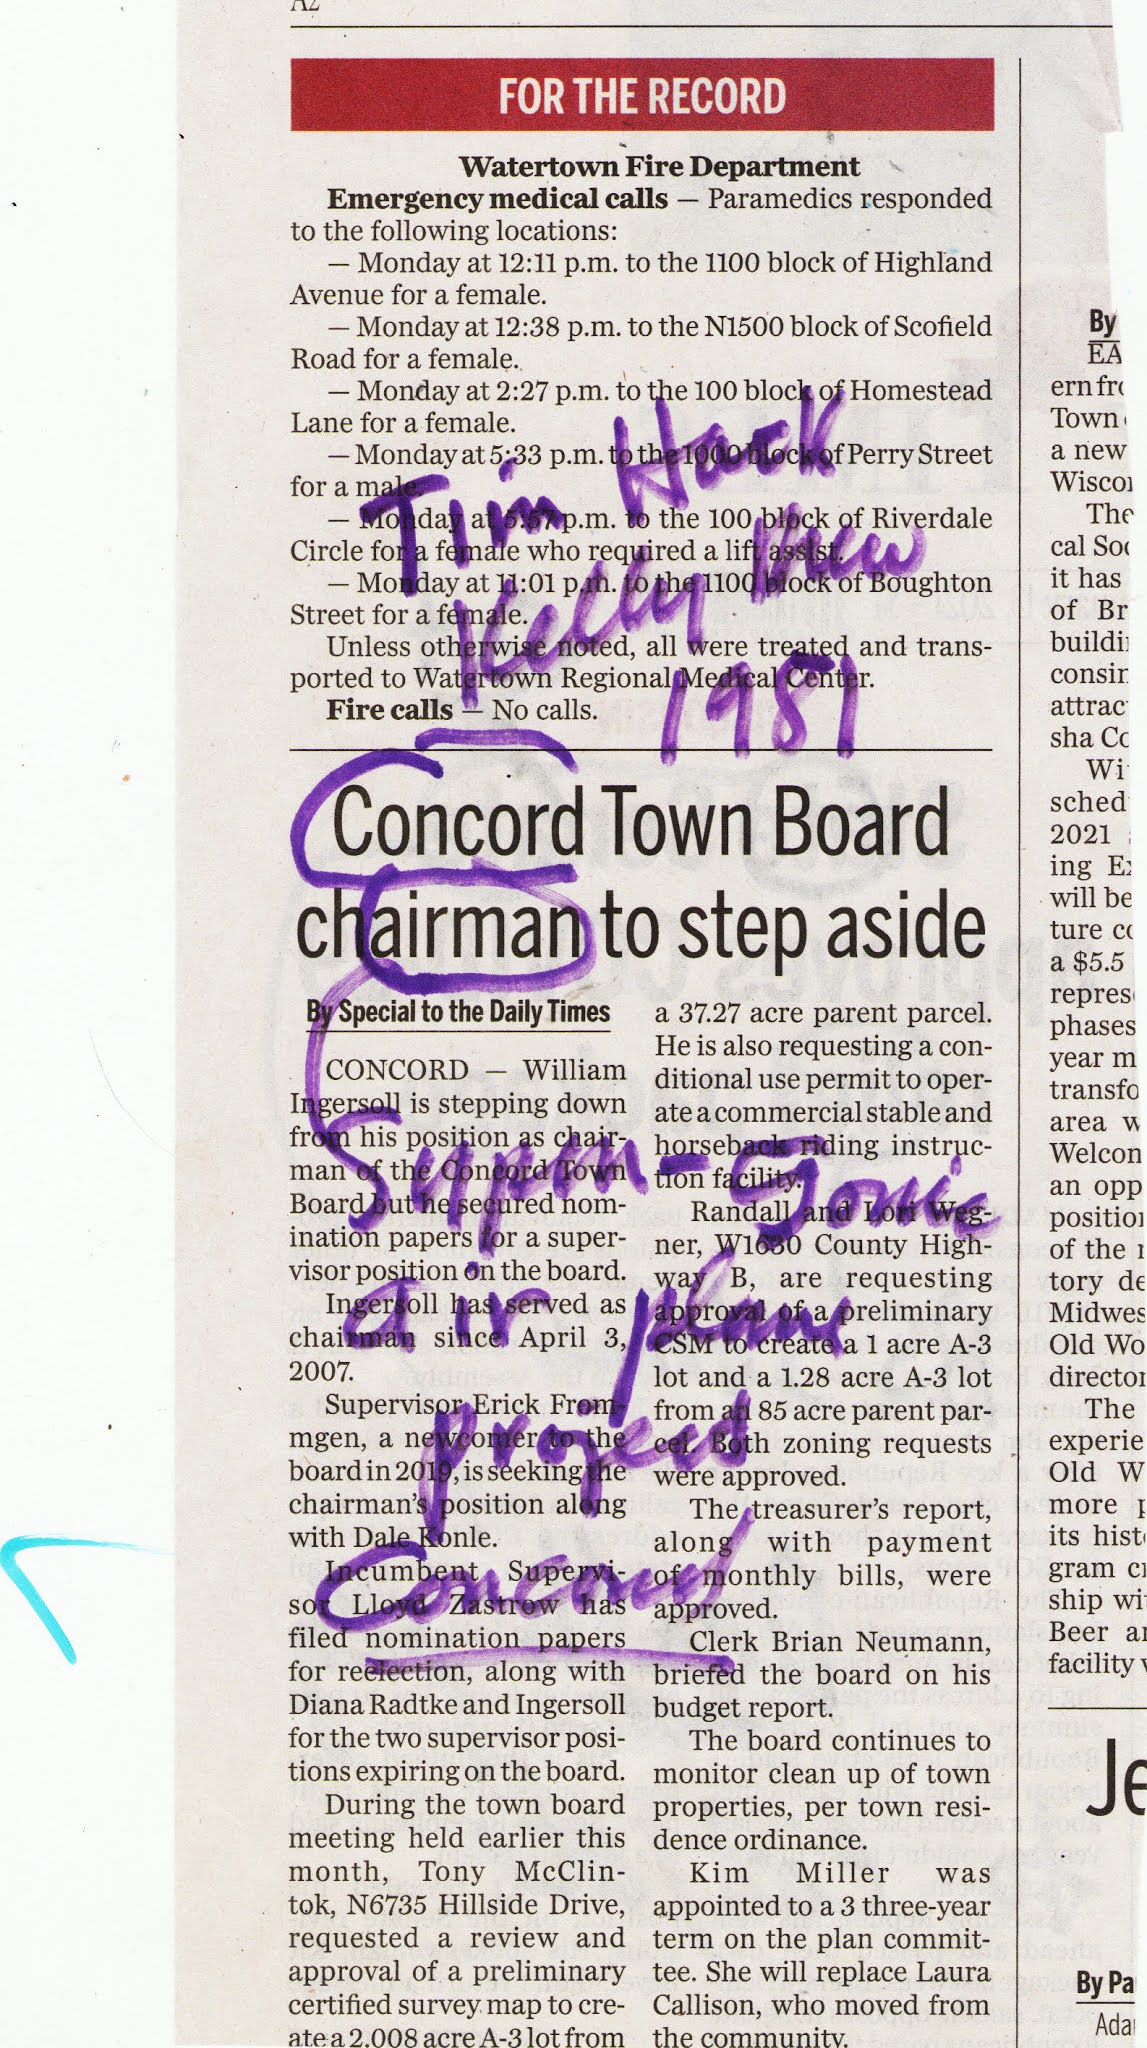 A2
FOR THE RECORD
Watertown Fire Department
Emergency medical calls — Paramedics responded
to the following locations:
— Monday at 12:11 p.m. to the 1100 block of Highland
Avenue for a female.
— Monday at 12:38 p.m. to the N1500 block of Scofield
Road for a female.
— Monday at 2:27 p.m. to the 100 block of Homestead
Lane for a female.
— Monday at 5:33 p.m. to the 1000 block of Perry Street
for a male.
— Monday at 5:57 p.m. to the 100 block of Riverdale
Circle for a female who required a lift assist.
— Monday at 11:01 p.m. to the 1100 block of Boughton
Street for a female.
Unless otherwise noted, all were treated and trans-
ported to Watertown Regional Medical Center.
Fire calls — No calls.
Tim Hack
Kelly
1981
Concord Town Board
chairman to step aside
By Special to the Daily Times
CONCORD — William
Ingersoll is stepping down
from his position as chair-
man of the Concord Town
Board but he secured nom-
ination papers for a super-
visor position on the board.
Ingersoll has served as
chairman since April 3,
2007.
Supervisor Erick From-
mgen, a newcomer to the
board in 2019, is seeking the
chairman's position along
with Dale Konle.
Incumbent Supervi-
sor Lloyd Zastrow has
filed nomination papers
for reelection, along with
Diana Radtke and Ingersoll
for the two supervisor posi-
tions expiring on the board.
During the town board
meeting held earlier this
month, Tony McClin-
tok, N6735 Hillside Drive,
requested a review and
approval of a preliminary
certified survey map to cre-
ate a 2.008 acre A-3 lot from
a 37.27 acre parent parcel.
He is also requesting a con-
ditional use permit to oper-
ate a commercial stable and
horseback riding instruc-
tion facility.
Randall and Lori Weg-
ner, W1630 County High-
way B, are requesting
approval of a preliminary
CSM to create a 1 acre A-3
lot and a 1.28 acre A-3 lot
from an 85 acre parent par-
cel. Both zoning requests
were approved.
The treasurer's report,
along with payment
of monthly bills, were
approved.
Clerk Brian Neumann,
briefed the board on his
budget report.
The board continues to
monitor clean up of town
properties, per town resi-
dence ordinance.
Kim Miller was
appointed to a 3 three-year
term on the plan commit-
tee. She will replace Laura
Callison, who moved from
the community.
Sonic
air plane
Concord
By
EA
ern fr
Town
a new
Wisco
The
cal So
it has
of Br
buildi
consin
attrac
sha Co
Wi
sched
2021
ing E
will be
ture co
a $5.5
repres
phases
year m
transfo
area w
Welcon
an opp
position
of the
tory de
Midwes
Old Wo
director
The
experie
Old W
more p
its hist
gram c
ship wi
Beer a
facility
Je
By Pa
Ada